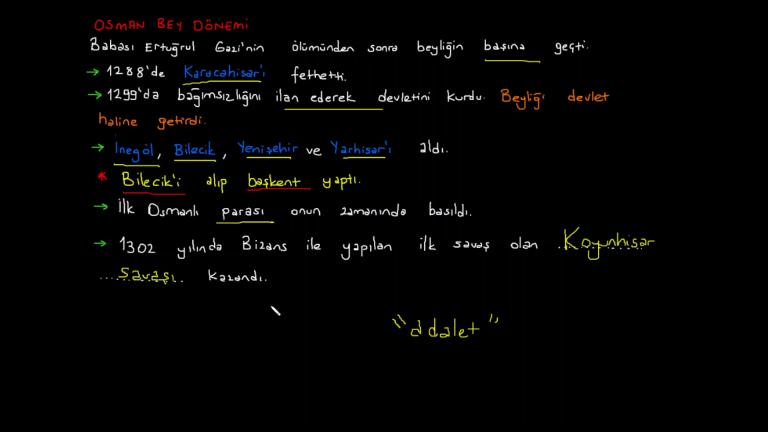 OSMAN BEY DÖNEMİ
Babası Ertuğrul Gazi'nin ölümünden sonra beyliğin başına geçti.
→ 1288'de Karacahisar'ı fethetti.
→ 1299'da bağımsızlığını ilan ederek devletini kurdu. Beyliği devlet
haline getirdi.
→ İnegöl, Bilecik, Yenişehir ve Yarhisar'ı aldı.
* Bilecik'i alıp başkent yaptı.
→ İlk Osmanlı parası onun zamanında basıldı.
→ 1302 yılında Bizans ile yapılan ilk savaş olan Koyunhisar
...Savaşı... kazandı.
"adalet"